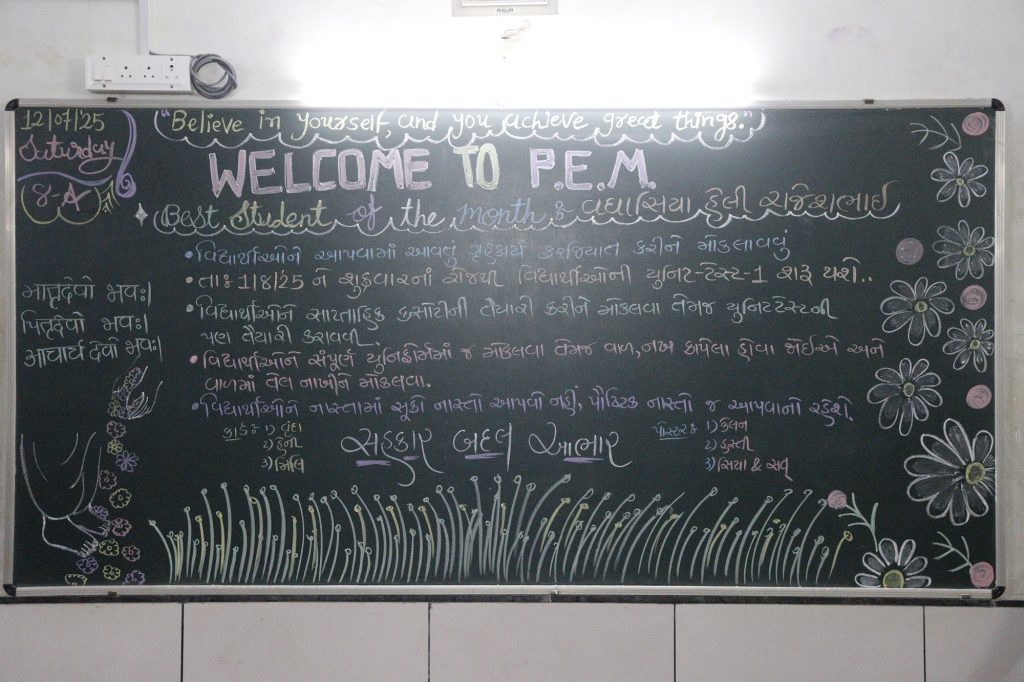 12/07/25
Saturday
૪-A
"Believe in yourself, and you achieve great things."
WELCOME TO P.E.M.
Best Student of the month : વઘાસિયા હેલી રાજેશભાઈ
• વિદ્યાર્થીઓને આપવામાં આવતું ગૃહકાર્ય ફરજિયાત કરીને મોકલાવવું
• તા: 1/8/25 ને શુક્રવારનાં રોજથી વિદ્યાર્થીઓની યુનિટ-ટેસ્ટ-1 શરૂ થશે..
• વિદ્યાર્થીઓને સાપ્તાહિક કસોટીની તૈયારી કરીને મોકલવા તેમજ યુનિટટેસ્ટની
પણ તૈયારી કરાવવી.
• વિદ્યાર્થીઓને સંપૂર્ણ યુનિફોર્મમાં જ મોકલવા તેમજ વાળ,નખ કાપેલા હોવા જોઈએ અને
વાળમાં તેલ નાખીને મોકલવા.
• વિદ્યાર્થીઓને નાસ્તામાં સૂકો નાસ્તો આપવો નહીં, પૌષ્ટિક નાસ્તો જ આપવાનો રહેશે.
માતૃદેવો ભવઃ।
પિતૃદેવો ભવઃ।
આચાર્ય દેવો ભવઃ।
કાર્ડ: ૧) વૃંદા
૨) હેની
૩)
સહકાર બદલ આભાર
પોસ્ટર: ૧)
૨)
૩) સિયા &